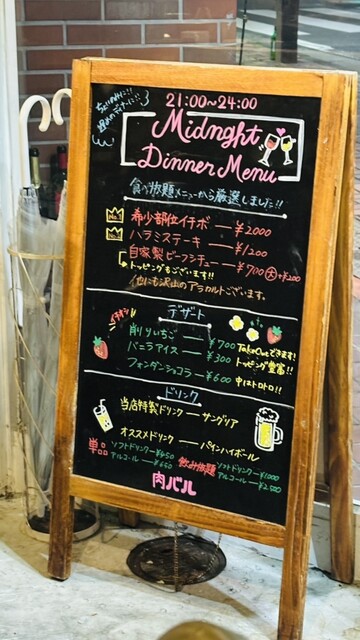 21:00~24:00
Midnght
Dinner Menu
食べ放題メニューから厳選しました!!
希少部位イチボ ― ¥2000
ハラミステーキ ― ¥1200
自家製ビーフシチュー ― ¥700 大+¥200
トッピングもございます!!
他にも沢山のアラカルトございます。
デザート
削りいちご ― ¥700
バニラアイス ― ¥300
フォンダンショコラ ― ¥600 中はトロトロ!!
TakeOutできます!
トッピング豊富!!
ドリンク
当店特製ドリンク ― サングリア
オススメドリンク ― パインハイボール
単品 ソフトドリンク ― ¥450
アルコール ― ¥650
飲み放題 ソフトドリンク ― ¥1000
アルコール ― ¥2,500
肉バル